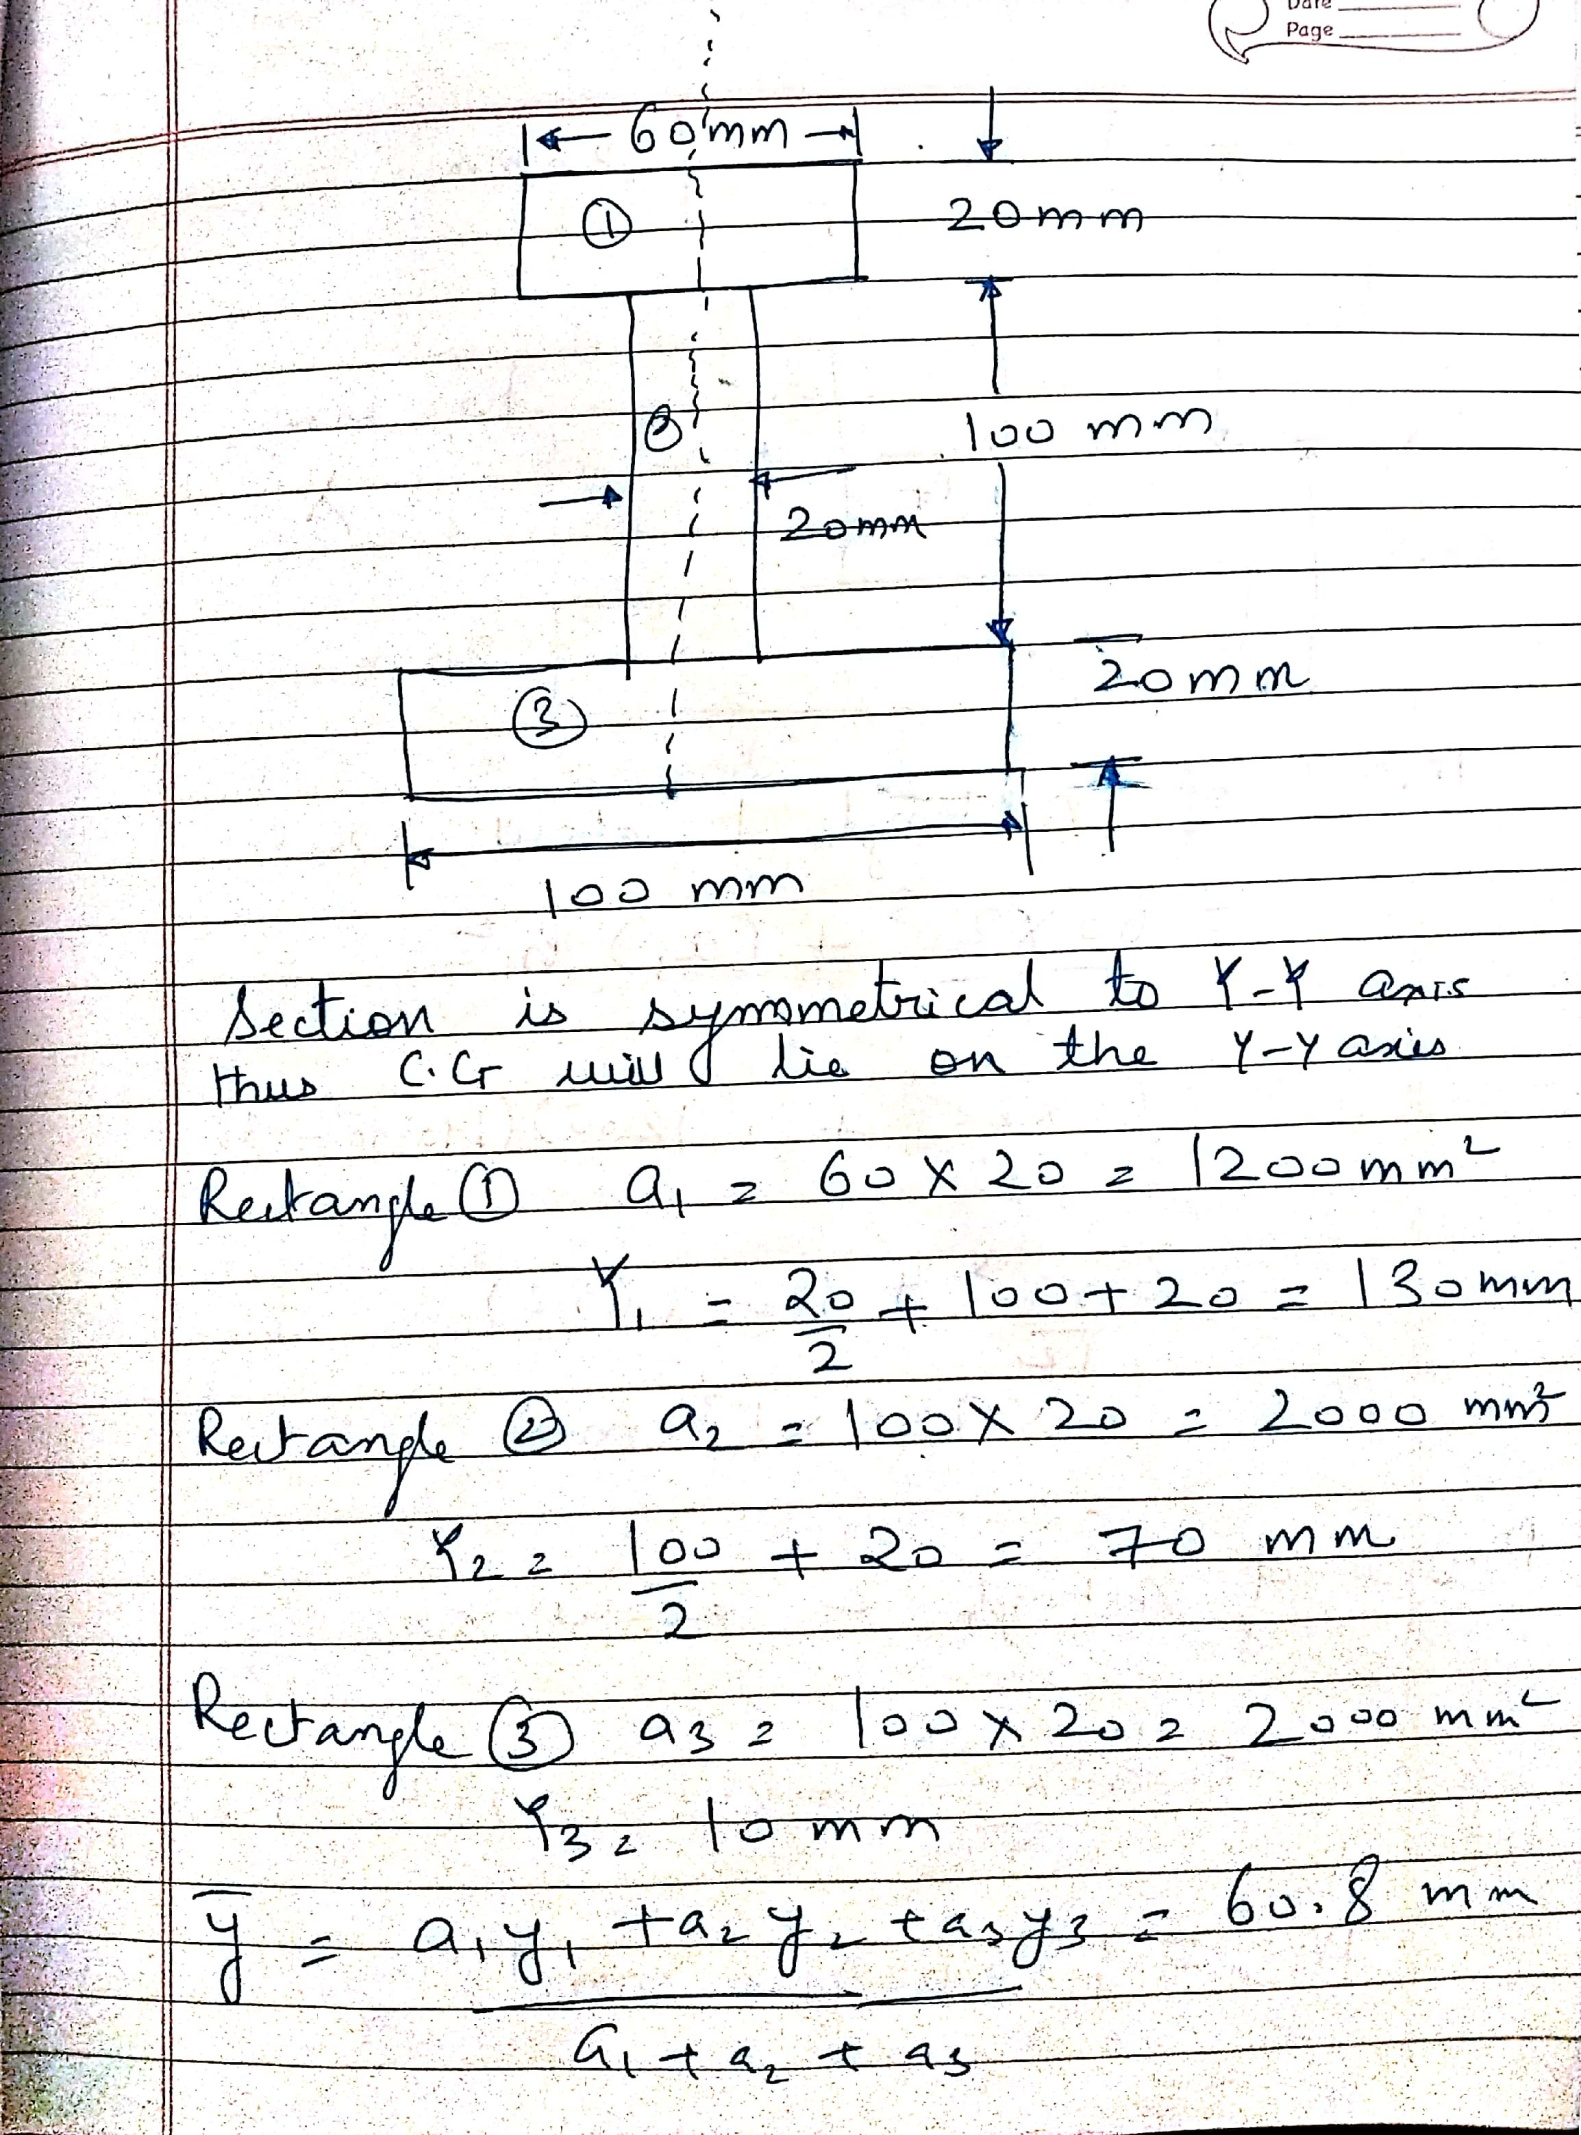 Date
Page
60 mm
①
20mm
②
100 mm
20mm
20mm
③
100 mm
Section is symmetrical to Y-Y axis
thus C.G will lie on the Y-Y axis
Rectangle ① a₁ = 60 X 20 = 1200mm²
Y₁ = 20/2 + 100 + 20 = 130mm
Rectangle ② a₂ = 100 X 20 = 2000 mm²
Y₂ = 100/2 + 20 = 70 mm
Rectangle ③ a₃ = 100 x 20 = 2000 mm²
Y₃ = 10 mm
ȳ = a₁y₁ + a₂y₂ + a₃y₃ = 60.8 mm
a₁ + a₂ + a₃